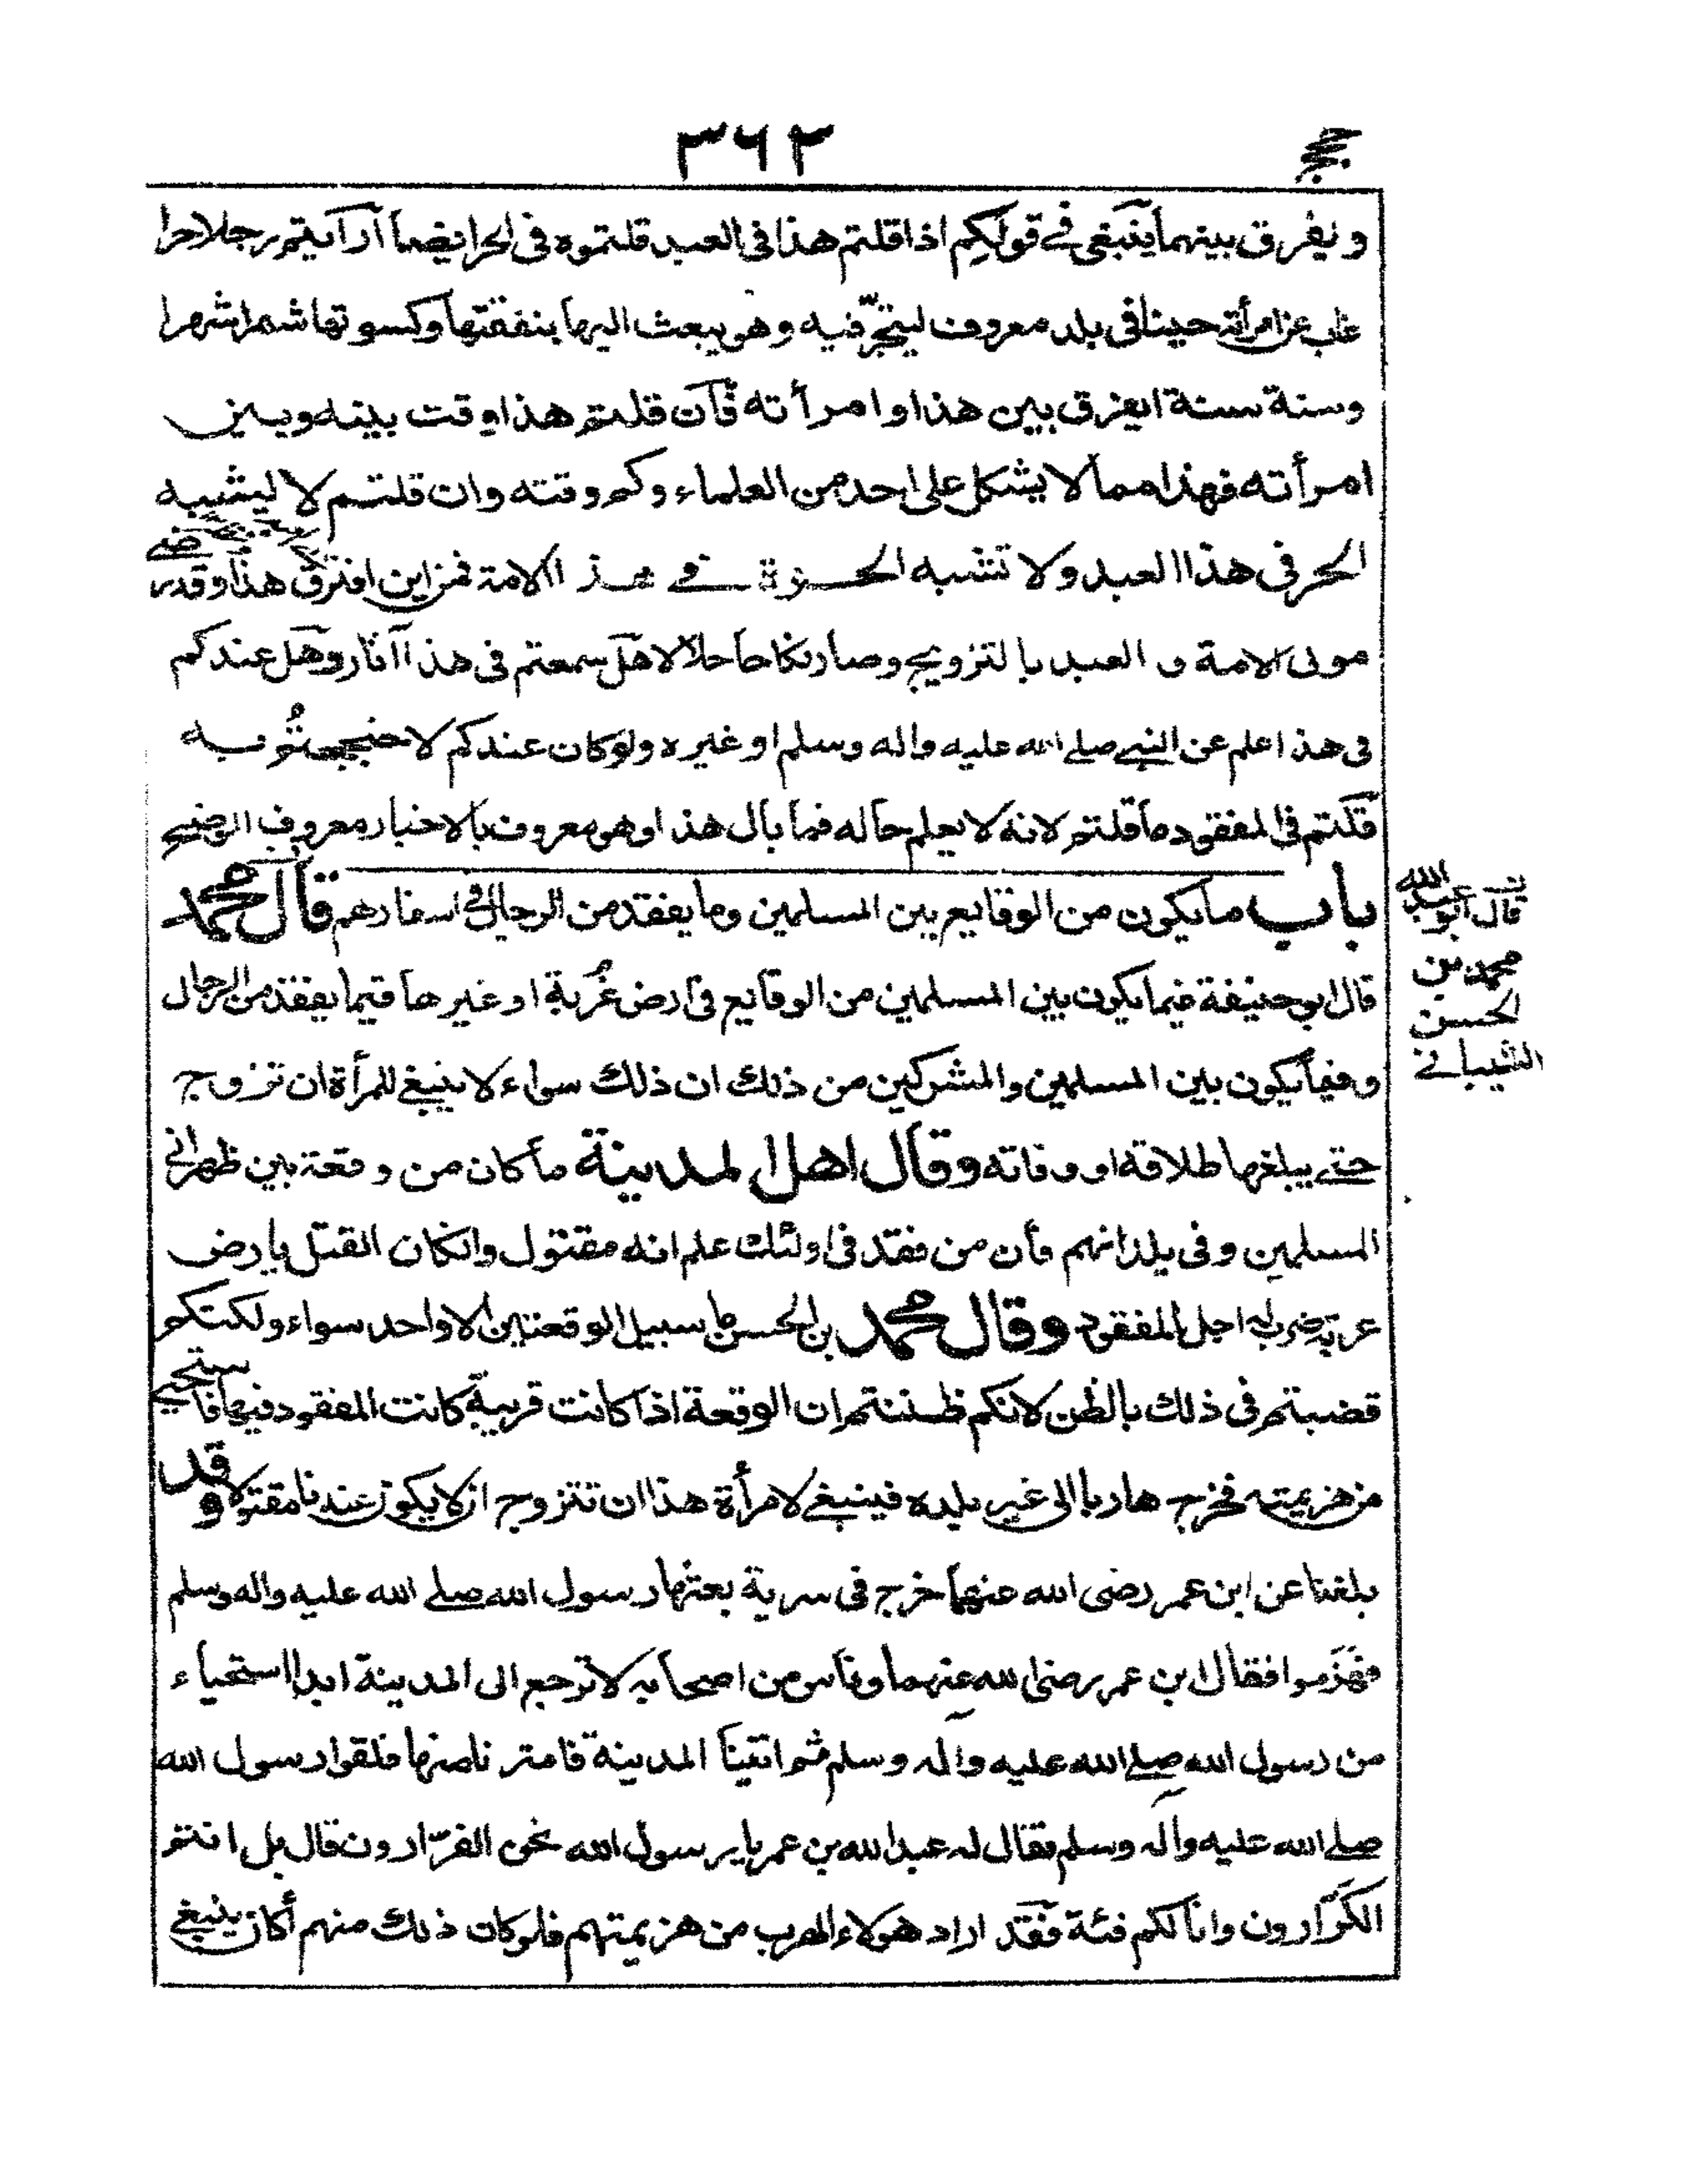 حجج
٣٦٢
و يفرق بينهما ينبغي في قولكم اذا قلتم هذا في العبد قلتموه في الحر ايضا أرأيتم رجلا حرا
غاب عن امرأته حينا في بلد معروف ليتجر فيه وهو يبعث اليها بنفقتها وكسوتها شهرا شهرا
وسنة سنة ايفرق بين هذا وامرأته فان قلتم هذا وقت بينه وبين
امرأته فهذا مما لا يشكل على احد من العلماء وكم وقته وان قلتم لا يشبه
الحر في هذا العبد ولا تشبه الحرة في هذا الامة فمن اين افترق هذا وقد رضي
مولى الامة و العبد بالتزويج وصار نكاحا حلالا هل سمعتم في هذا آثار وهل عندكم
في هذا علم عن النبي صلى الله عليه واله وسلم او غيره ولو كان عندكم لاحتججتم به
قلتم في المفقود ما قلتم لانه لا يعلم حاله فما بال هذا وهو معروف بالاخبار معروف الموضع
باب ما يكون من الوقايع بين المسلمين وما يفقد من الرجال في اسفارهم قال محمد
قال ابو عبد الله
محمد بن
الحسن
الشيباني
قال ابو حنيفة فيما يكون بين المسلمين من الوقايع في ارض غربة او غيرها فيما يفقد من الرجال
وفيما يكون بين المسلمين والمشركين من ذلك ان ذلك سواء لا ينبغي للمرأة ان تزوج
حتى يبلغها طلاقه او وفاته وقال اهل المدينة ما كان من وقعة بين ظهراني
المسلمين وفي بلدانهم فان من فقد في اولئك علم انه مقتول وانكان القتل بارض
غربة ضرب له اجل المفقود وقال محمد بن الحسن ما سبيل الوقعتين الا واحد سواء ولكنكم
قضيتم في ذلك بالظن لانكم ظننتم ان الوقعة اذا كانت قريبة كانت المفقود فيها فاستحيى
من هزيمته فخرج هاربا الى غير بلده فينبغي لامرأة هذا ان تتزوج ان لا يكون عندنا مقتولا و قد
بلغنا عن ابن عمر رضى الله عنهما خرج في سرية بعثها رسول الله صلى الله عليه واله وسلم
فهزموا فقال ابن عمر رضى الله عنهما وناس من اصحابه لا نرجع الى المدينة ابدا استحياء
من رسول الله صلى الله عليه واله وسلم ثم اتينا المدينة فلقوا رسول الله
صلى الله عليه واله وسلم فقال له عبد الله بن عمر يا رسول الله نحن الفرارون قال بل انتم
الكرارون وانا لكم فئة فقد اراد هولاء الهرب من هزيمتهم فلو كان ذلك منهم أكان ينبغي